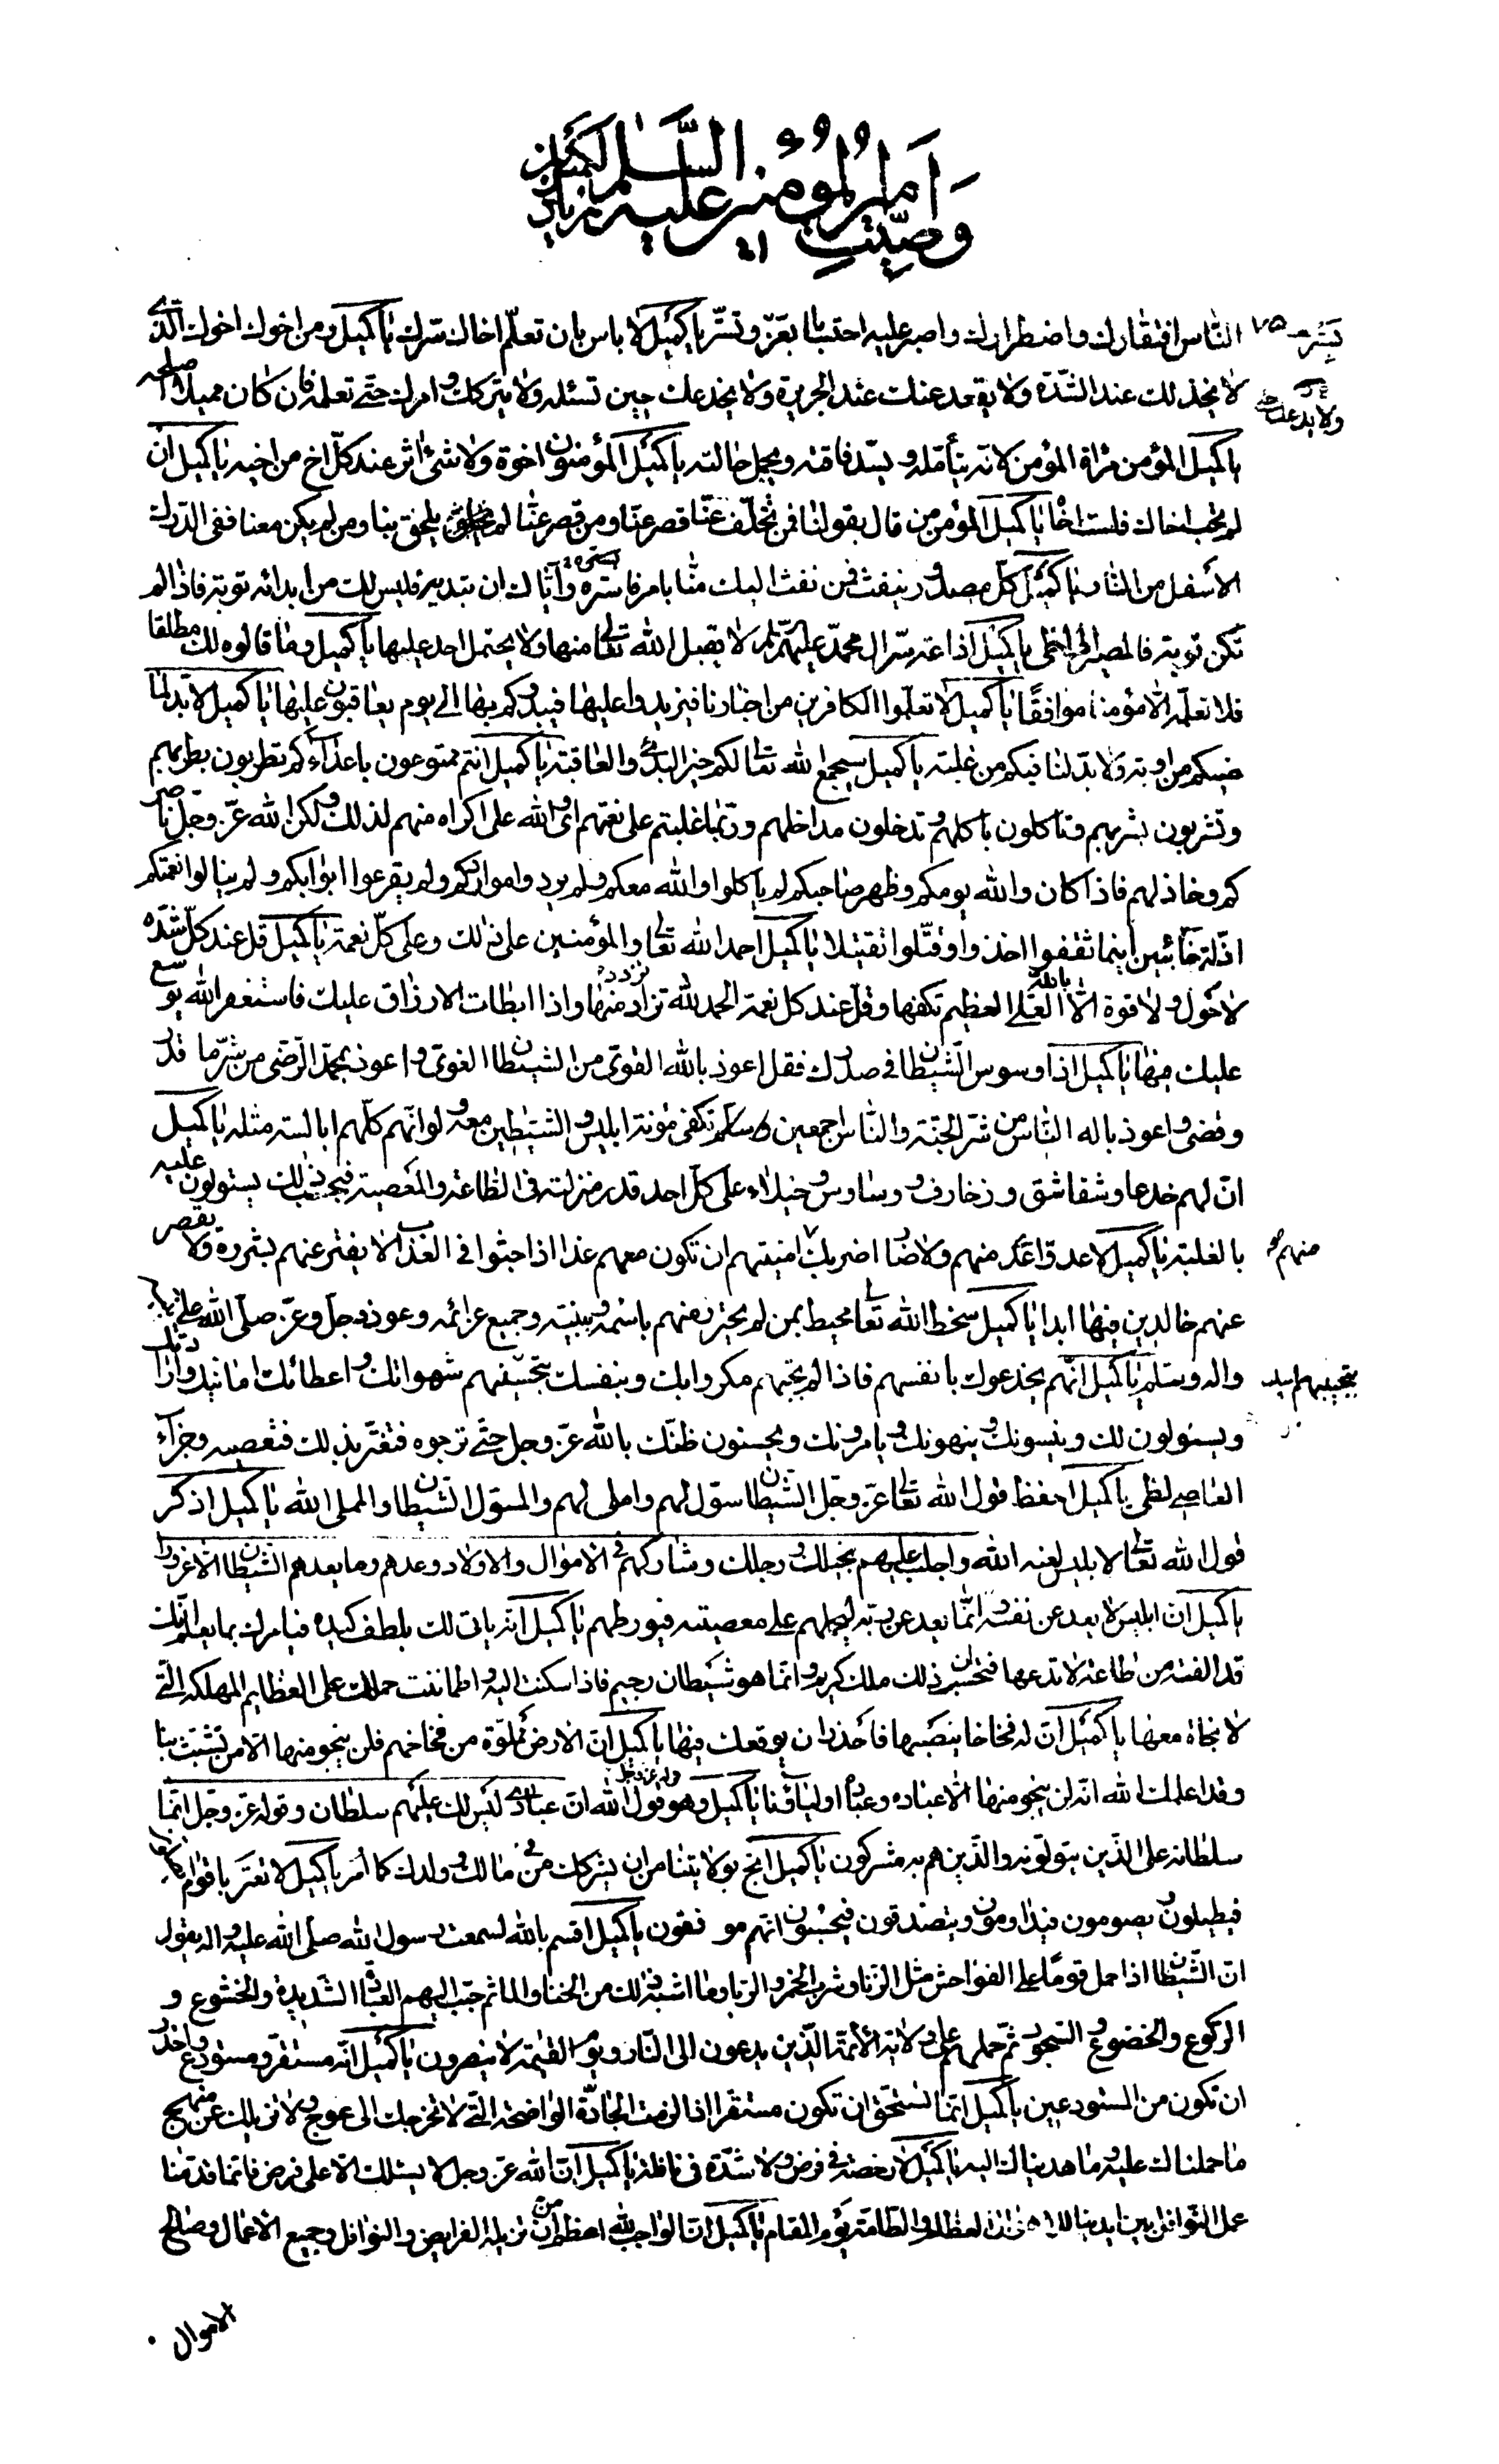 وصيت امير المؤمنين عليه السلم لكميل بن زياد
الناس افتقارك واضطرارك واصبر عليه احتسابا بعز وتستر يا كميل لا باس بان تعلم اخاك سرك يا كميل ومن اخوك اخوك الذى
لا يخذلك عند الشدة ولا يقعد عنك عند الجريرة ولا يخدعك حين تسئله ولا يتركك وامرك حتى تعلمه فان كان مميلا اصلحه
يا كميل المؤمن مراة المؤمن لانه يتأمله ويسد فاقته ويجمل حالته يا كميل المؤمنون اخوة ولا شئ اثر عند كل اخ من اخيه يا كميل ان
لم تحب اخاك فلست اخاه يا كميل المؤمن من قال بقولنا فمن تخلف عنا قصر عنا ومن قصر عنا لم يلحق بنا ومن لم يكن معنا ففى الدرك
الأسفل من النار يا كميل كل مصدور ينفث فمن نفث اليك منا بامر فاستره واياك ان تبديه فليس لك من ابدائه توبة فاذا لم
تكن توبة فالمصير الى لظى يا كميل اذاعة سر ال محمد عليهم السلم لا يقبل الله تعالى منها ولا يحتمل احد عليها يا كميل وما قالوه لك مطلقا
فلا تعلمه الا مؤمنا موافقا يا كميل لا تعلموا الكافرين من اخبارنا فيزيدوا عليها فيبدوكم بها الى يوم يعاقبون عليها يا كميل لا بد لما
ضيكم من اوبة ولا بد لنا فيكم من غلبة يا كميل سيجمع الله تعالى لكم خير البدء والعاقبة يا كميل انتم ممتوعون باعدآءكم تطربون بطربهم
وتشربون بشربهم وتاكلون باكلهم وتدخلون مداخلهم وربما غلبتم على نعمتهم اى والله على اكراه منهم لذلك ولكن الله عز وجل ناصر
كم وخاذلهم فاذا كان والله يومكم وظهر صاحبكم لم ياكلوا والله معكم ولم يردوا مواردكم ولم يقرعوا ابوابكم ولم ينالوا نعمتكم
اذلة خائبين اينما ثقفوا اخذوا وقتلوا تقتيلا يا كميل احمد الله تعالى والمؤمنين على ذلك وعلى كل نعمة يا كميل قل عند كل شده
لا حول ولا قوة الا بالله العلى العظيم تكفها وقل عند كل نعمة الحمد لله تزاد منها واذا ابطات الارزاق عليك فاستغفر الله يوسع
عليك فيها يا كميل اذا وسوس الشيطان فى صدرك فقل اعوذ بالله القوى من الشيطان الغوى واعوذ بمحمد الرضى من شر ما قدر
وقضى واعوذ باله الناس من شر الجنة والناس اجمعين وسلم تكفى مؤنة ابليس والشيطين معه ولو انهم كلهم ابالسة مثله يا كميل
ان لهم خدعا وشقاشق وزخارف ووساوس وخيلاء على كل احد قدر منزلته فى الطاعة والمعصية فبحسب ذلك يستولون عليه
بالغلبة يا كميل لا عدو اعدى منهم ولا ضار اضر بك امنيتهم ان تكون معهم غدا اذا جثوا فى العذاب لا يفتر عنهم بشرره ولا يقصر
عنهم خالدين فيها ابدا يا كميل سخط الله تعالى محيط بمن لم يحترز منهم باسمه ونبيه وجميع عزائمه وعوذه جل وعز صلى الله على نبيه
واله وسلم يا كميل انهم يخدعوك بانفسهم فاذا لم تجبهم مكروا بك وبنفسك بتحسينهم شهواتك واعطائك امانيك وارادتك
ويسولون لك وينسونك وينهونك ويامرونك ويحسنون ظنك بالله عز وجل حتى ترجوه فتغتر بذلك فتعصيه وجزآء
العاصى لظى يا كميل احفظ قول الله تعالى عز وجل الشيطان سول لهم واملى لهم والمسول الشيطان والمملى الله يا كميل اذكر
قول الله تعالى لابليس لعنه الله واجلب عليهم بخيلك ورجلك وشاركهم فى الاموال والاولاد وعدهم وما يعدهم الشيطان الا غرورا
يا كميل ان ابليس لا يعد عن نفسه وانما يعد عن ربه ليحملهم على معصيته فيورطهم يا كميل انه ياتى لك بلطف كيده فيامرك بما يعلم انك
قد الفته من طاعة لا تدعها فتحسب ان ذلك ملك كريم وانما هو شيطان رجيم فاذا سكنت اليه واطماننت حملك على العظايم المهلكه التى
لا نجاة معها يا كميل ان له فخاخا ينصبها فاحذر ان يوقعك فيها يا كميل ان الارض مملوة من فخاخهم فلن ينجو منها الا من تشبث بنا
وقد اعلمك الله انه لن ينجو منها الا عباده وعباده اولياؤنا يا كميل وهو قول الله ان عبادى ليس لك عليهم سلطان وقوله عز وجل انما
سلطانه على الذين يتولونه والذين هم به مشركون يا كميل انج بولايتنا من ان يشركك فى مالك وولدك كما امر يا كميل لا تغتر باقوام
فيطيلون يصومون فيداومون ويتصدقون فيحسبون انهم موفقون يا كميل اقسم بالله لسمعت رسول الله صلى الله عليه واله يقول
ان الشيطان اذا حمل قوما على الفواحش مثل الزنا وشرب الخمر والربا وما اشبه ذلك من الخنا والماثم حبب اليهم العبادة الشديدة والخشوع و
الركوع والخضوع والسجود ثم حملهم على ولاية الأئمة الذين يدعون الى النار ويوم القيمة لا ينصرون يا كميل انه مستقر ومستودع واحذر
ان تكون من المستودعين يا كميل انما تستحق ان تكون مستقرا اذا لزمت الجادة الواضحة التى لا تخرجك الى عوج ولا تزيلك عن منهج
ما حملناك عليه وما هديناك اليه يا كميل لا رخصة فى فرض ولا شدة فى نافلة يا كميل ان الله عز وجل لا يسئلك الا على فرض فانما قدمنا
عمل النوافل بين ايدينا للاهوال العظام والطامة يوم المقام يا كميل ان الواجب لله اعظم من ان تزيله الفرايض والنوافل وجميع الاعمال وصالح
الاموال
منهم